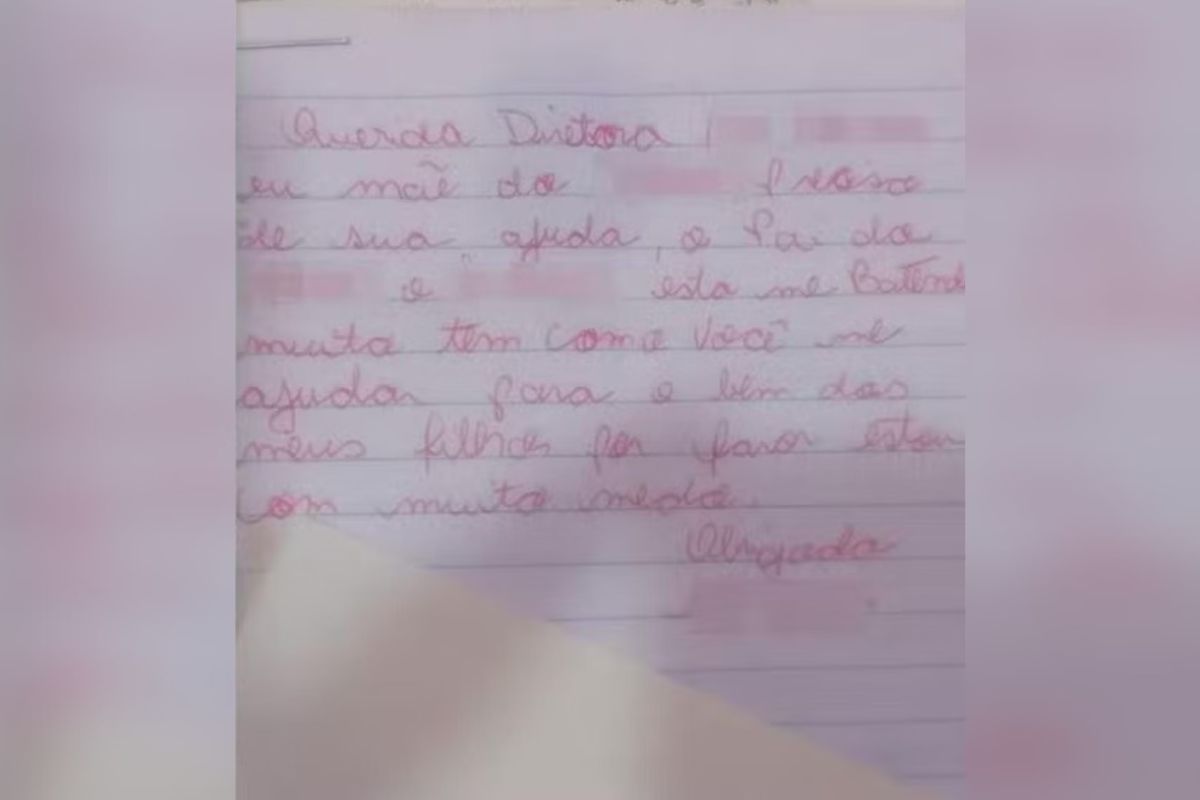 Querida Diretora
eu mãe do preciso
de sua ajuda, o Pai do
e esta me Batend
muito tem como você me
ajudar para o bem dos
meus filhos por favor estou
com muito medo.
Obrigada